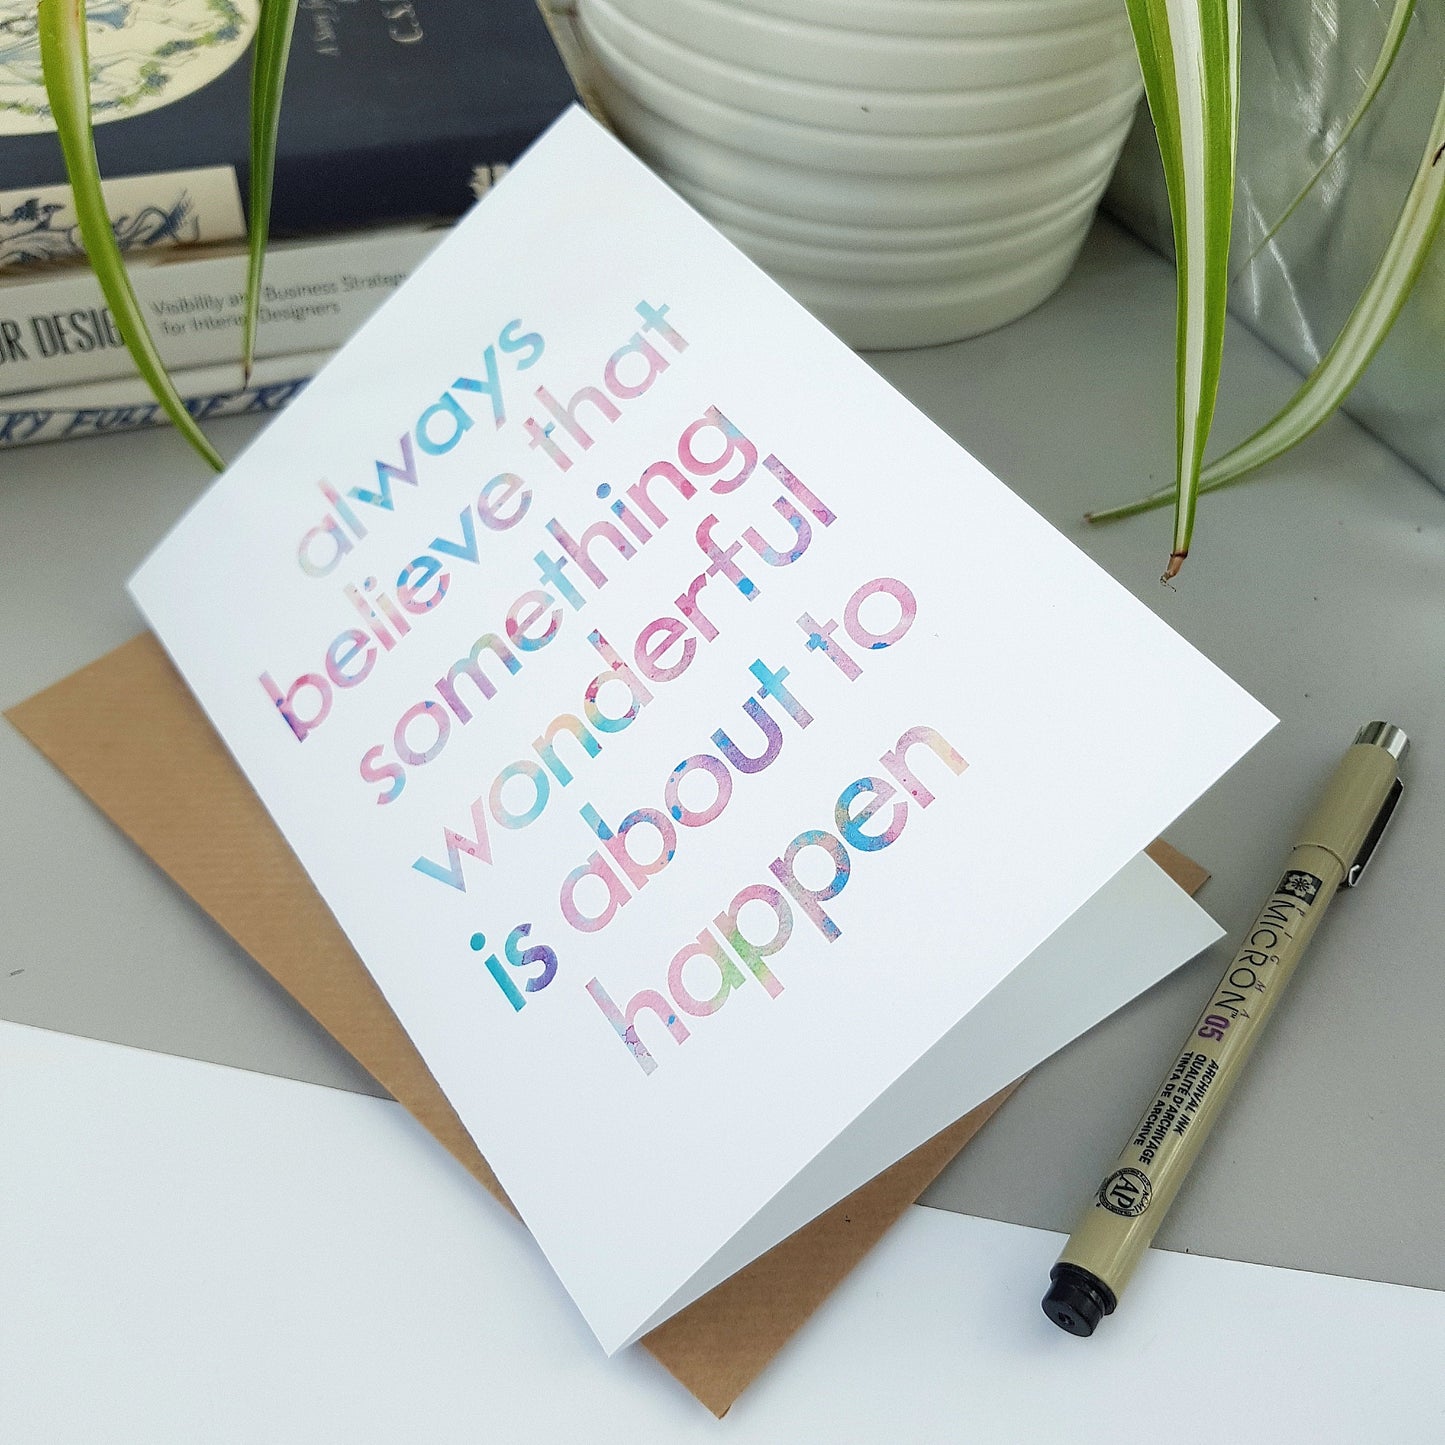 always
believe that
something
wonderful
is about to
happen
Visibility and Business Strategy
for Interior Designers
PIGMA
MICRON™ 05
ARCHIVAL INK
QUALITÉ D'ARCHIVAGE
TINTA DE ARCHIVE
AP